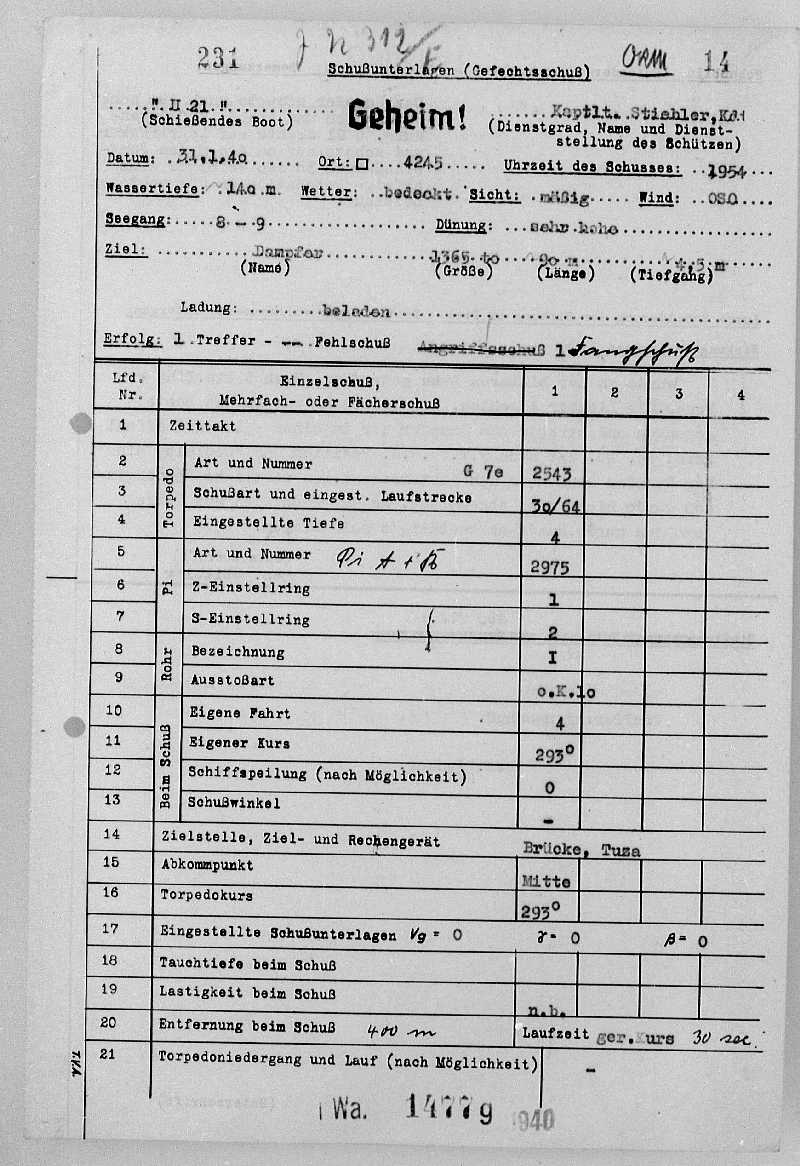 231 J N 312/E ORM 14
Schußunterlagen (Gefechtsschuß)
"II 21." Geheim! Kaptlt. Stiehler, Kdt
(Schießendes Boot) (Dienstgrad, Name und Dienst-
stellung des Schützen)
Datum: 31.1.40 Ort: □ 4245 Uhrzeit des Schusses: 1954
Wassertiefe: 140 m Wetter: bedeckt Sicht: mäßig Wind: OSO
Seegang: 8 - 9 Dünung: sehr hohe
Ziel: Dampfer 1365 to 90 m 4,5 m
(Name) (Größe) (Länge) (Tiefgang)
Ladung: beladen
Erfolg: 1 Treffer - -- Fehlschuß Angriffsschuß 1 Fangschuß
Lfd. Nr. Einzelschuß, Mehrfach- oder Fächerschuß 1 2 3 4
1 Zeittakt
Torpedo
2 Art und Nummer G 7e 2543
3 Schußart und eingest. Laufstrecke 30/64
4 Eingestellte Tiefe 4
Pi
5 Art und Nummer Pi A + B 2975
6 Z-Einstellring 1
7 S-Einstellring 2
Rohr
8 Bezeichnung I
9 Ausstoßart o.K.10
Beim Schuß
10 Eigene Fahrt 4
11 Eigener Kurs 293°
12 Schiffspeilung (nach Möglichkeit) 0
13 Schußwinkel -
14 Zielstelle, Ziel- und Rechengerät Brücke, Tuza
15 Abkommpunkt Mitte
16 Torpedokurs 293°
17 Eingestellte Schußunterlagen Vg = 0 γ- 0 β= 0
18 Tauchtiefe beim Schuß
19 Lastigkeit beim Schuß n.b.
20 Entfernung beim Schuß 400 m Laufzeit ger.Kurs 30 sec.
21 Torpedoniedergang und Lauf (nach Möglichkeit) -
TKA
Wa. 1477g 1940